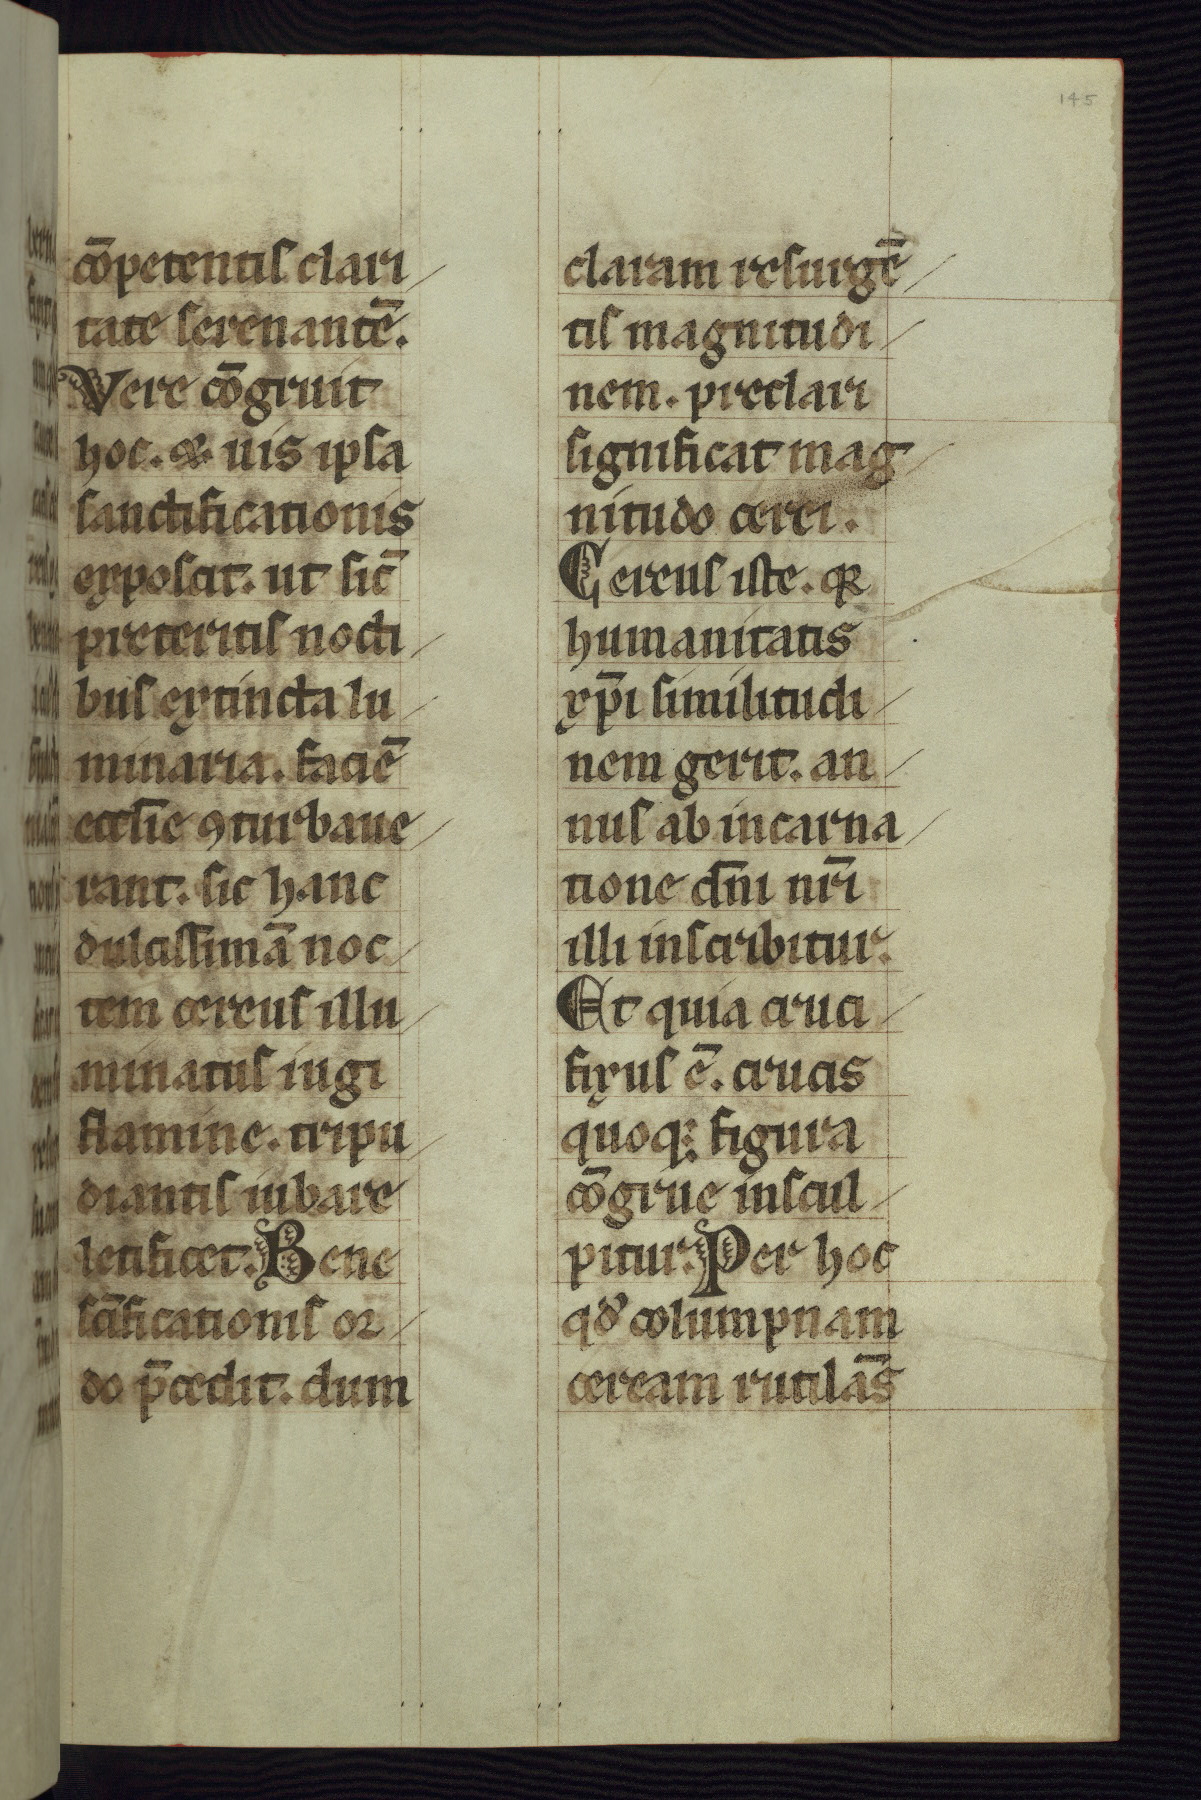 145
cōpetentis clari
tate serenantē.
Vere cōgruit
hoc. & uis ipsa
sanctificationis
exposcit. ut sic̄
preteritis nocti
bus extincta lu
minaria. faciē
ecclesie ꝯturbaue
rant. sic hanc
dulcissimā noc
tem cereus illu
minatus iugi
flamine. tripu
diantis iubare
letificet. Bene
sc̄ificationis or
do p̄cedit. dum
claram resurgē
tis magnitudi
nem. preclari
significat mag
nitudo cerei.
Cereus iste. qꝛ
humanitatis
xp̄i similitudi
nem gerit. an
nus ab incarna
tione dn̄i nr̄i
illi inscribitur.
Et quia cruci
fixus ē. crucis
quoq; figura
cōgrue inscul
pitur. Per hoc
qd̓ columpnam
ceream rutilās